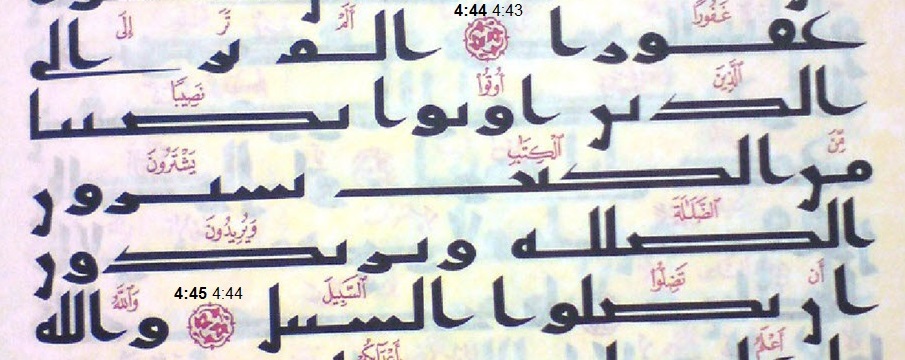 4:44 4:43
غَفُورًا أَلَمْ تَرَ إِلَى
غفورا الم تر الى
ٱلَّذِينَ أُوتُوا۟ نَصِيبًا
الذين اوتوا نصيبا
مِّنَ ٱلْكِتَٰبِ يَشْتَرُونَ
من الكتب يشترون
ٱلضَّلَٰلَةَ وَيُرِيدُونَ
الضللة ويريدون
أَن تَضِلُّوا۟ ٱلسَّبِيلَ 4:45 4:44 وَٱللَّهُ
ان تضلوا السبيل والله
أَعْلَمُ